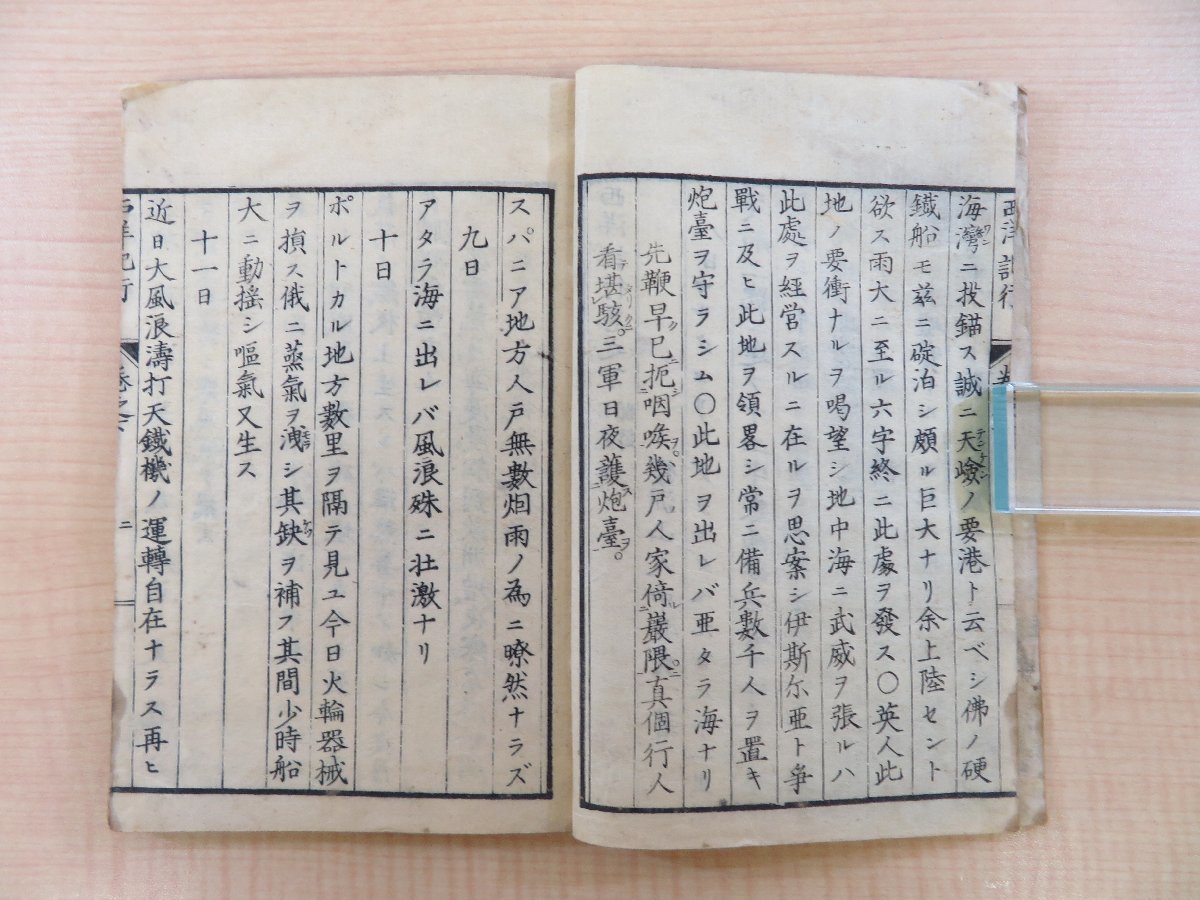 西洋記行
海灣ニ投錨ス誠ニ天嶮ノ要港ト云ベシ佛ノ硬
鐵船モ茲ニ碇泊シ頗ル巨大ナリ余上陸セント
欲ス雨大ニ至ル六字終ニ此處ヲ發ス〇英人此
地ノ要衝ナルヲ喝望シ地中海ニ武威ヲ張ルハ
此處ヲ経営スルニ在ルヲ思案シ伊斯尓亜ト爭
戰ニ及ヒ此地ヲ領畧シ常ニ備兵數千人ヲ置キ
炮臺ヲ守ラシム〇此地ヲ出レバ亜タラ海ナリ
先鞭早已扼咽喉幾戸人家倚巖隈真個行人
看堪駭三軍日夜護炮臺
スパニア地方人戸無數烟雨ノ為ニ暸然ナラズ
九日
アタラ海ニ出レバ風浪殊ニ壮激ナリ
十日
ポルトカル地方數里ヲ隔テ見ユ今日火輪器械
ヲ損ス俄ニ蒸氣ヲ洩シ其缺ヲ補フ其間少時船
大ニ動揺シ嘔氣又生ス
十一日
近日大風浪濤打天鐵機ノ運轉自在ナラス再ヒ
西洋記行 二